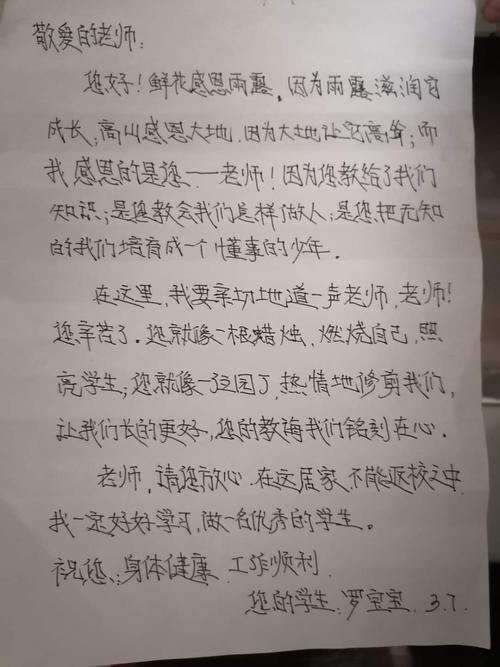 敬爱的老师:
您好!鲜花感恩雨露,因为雨露滋润它
成长,高山感恩大地,因为大地让它高耸;而
我感恩的是您——老师!因为您教给了我们
知识;是您教会我们怎样做人;是您把无知
的我们培育成一个懂事的少年.
在这里,我要亲切地道一声老师,老师!
您辛苦了.您就像一根蜡烛,燃烧自己,照
亮学生;您就像一位园丁,热情地修剪我们,
让我们长的更好,您的教诲我们铭刻在心.
老师,请您放心.在这居家不能返校之中
我一定好好学习,做一名优秀的学生。
祝您:身体健康 工作顺利
您的学生:罗宝宝 3.7.